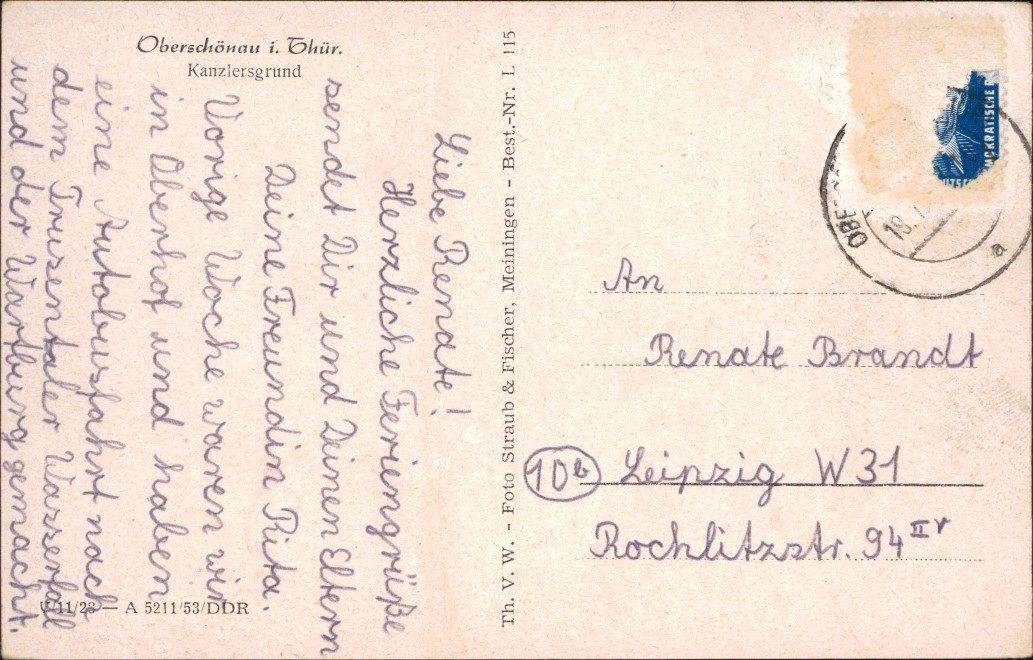 Oberschönau i. Thür.
Kanzlersgrund
Liebe Renate!
Herzliche Feriengrüße
sendet Dir und Deinen Eltern
Deine Freundin Rita.
Vorige Woche waren wir
in Oberhof und haben
eine Autobusfahrt nach
dem Trusentaler Wasserfall
und der Wartburg gemacht.
V/11/28 — A 5211/53/DDR
Th. V. W. - Foto Straub & Fischer, Meiningen - Best.-Nr. L 115
An
Renate Brandt
10b Leipzig W 31
Rochlitzstr. 94 II r
18.
a